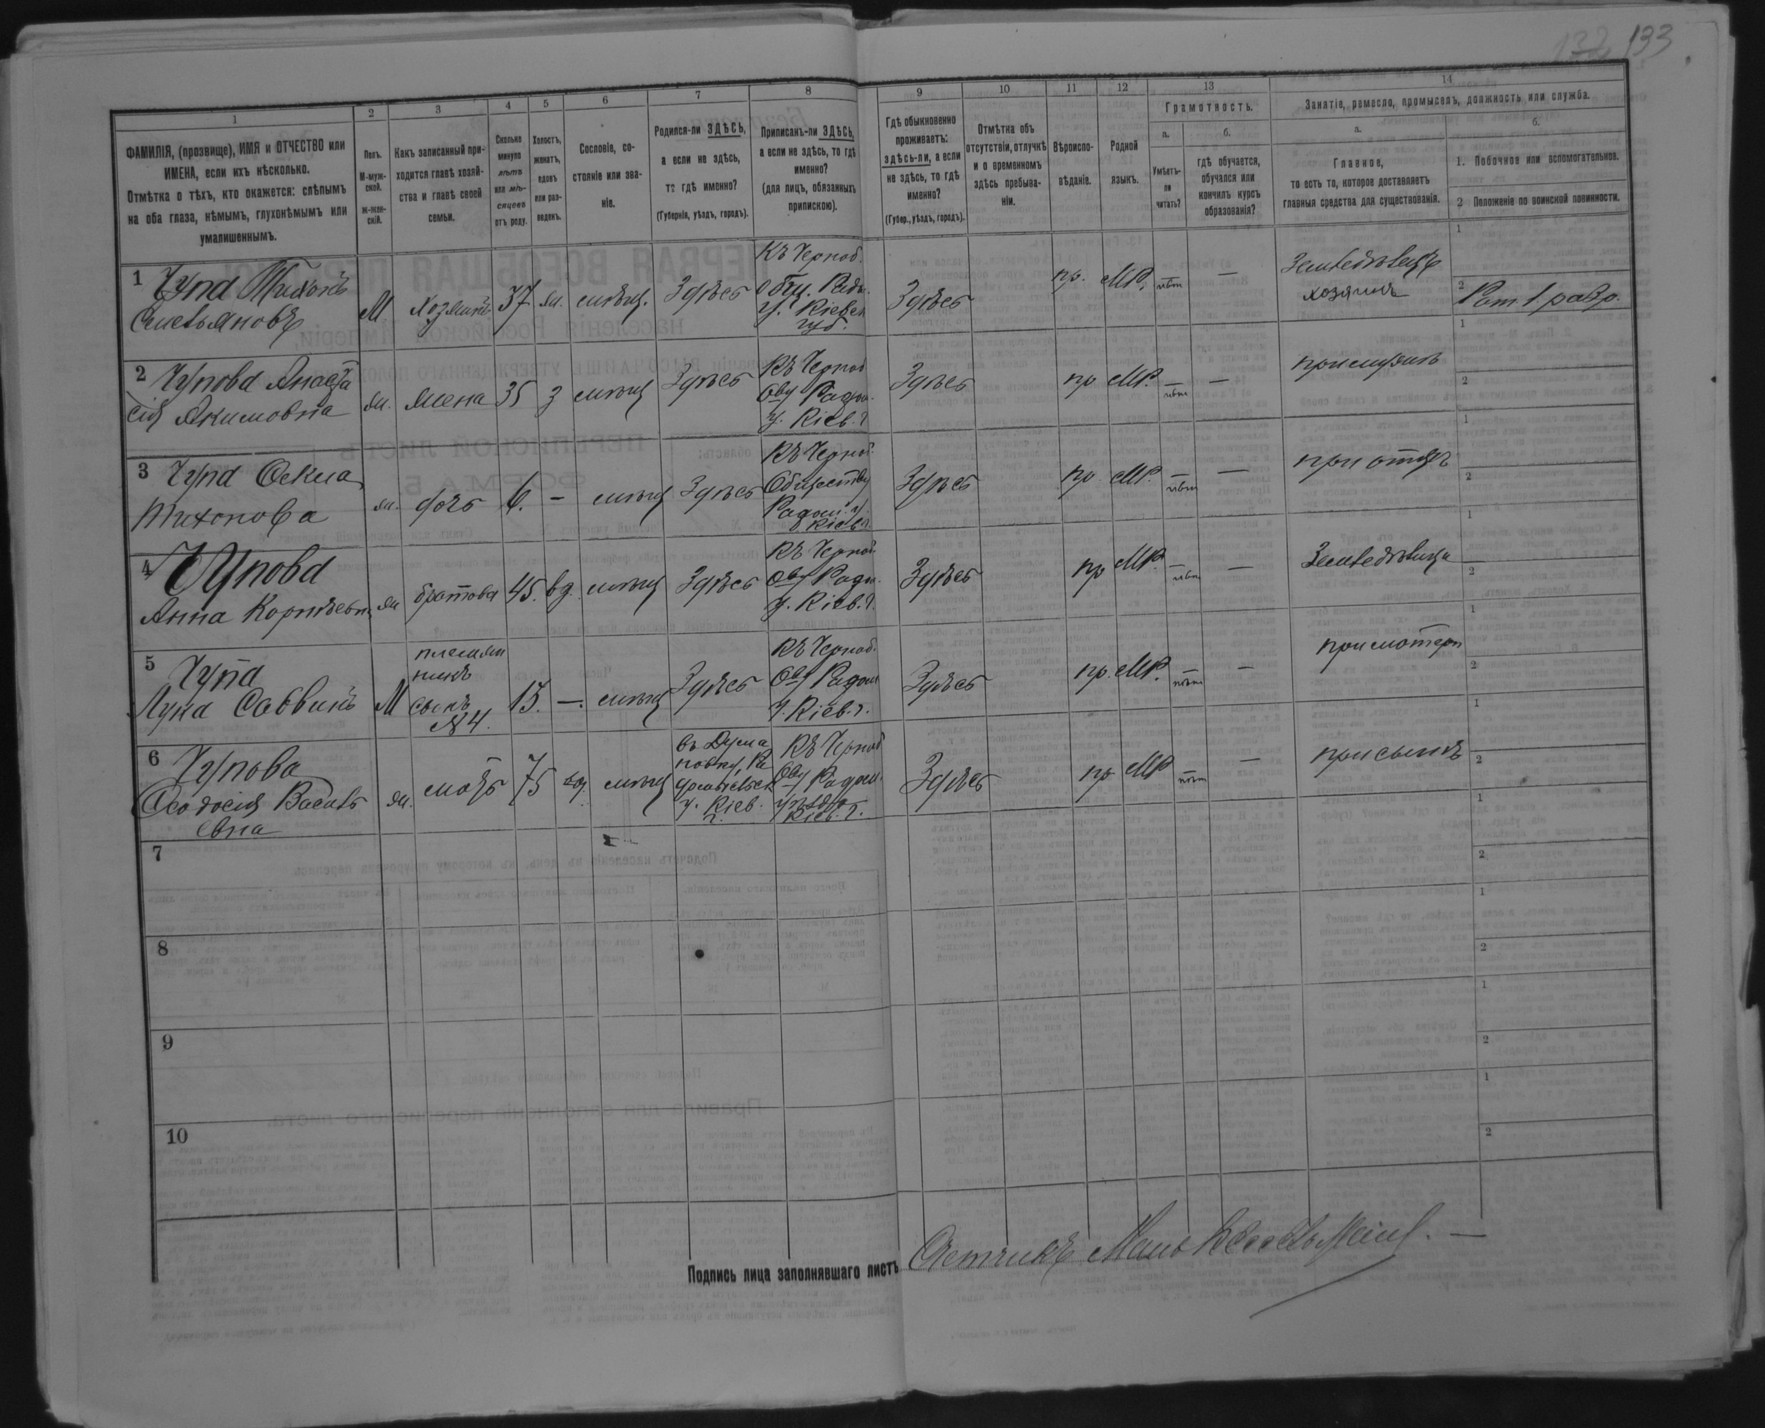 132 133
1 2 3 4 5 6 7 8 9 10 11 12 13 14
ФАМИЛІЯ, (прозвище), ИМЯ и ОТЧЕСТВО или
ИМЕНА, если ихъ нѣсколько.
Отмѣтка о тѣхъ, кто окажется: слѣпымъ
на оба глаза, нѣмымъ, глухонѣмымъ или
умалишеннымъ.
Полъ.
М-муж-
ской.
Ж-жен-
скій.
Какъ записанный при-
ходится главѣ хозяй-
ства и главѣ своей
семьи.
Сколько
минуло
лѣтъ
или мѣ-
сяцевъ
отъ роду.
Холостъ,
женатъ,
вдовъ
или раз-
веденъ.
Сословіе, со-
стояніе или зва-
ніе.
Родился-ли ЗДѢСЬ,
а если не здѣсь,
то гдѣ именно?
(Губернія, уѣздъ, городъ).
Приписанъ-ли ЗДѢСЬ,
а если не здѣсь, то гдѣ
именно?
(для лицъ, обязанныхъ
припискою).
Гдѣ обыкновенно
проживаетъ:
здѣсь-ли, а если
не здѣсь, то гдѣ
именно?
(Губер., уѣздъ, городъ).
Отмѣтка объ
отсутствіи, отлучкѣ
и о временномъ
здѣсь пребыва-
ніи.
Вѣроиспо-
вѣданіе.
Родной
языкъ.
Грамотность.
а.
Умѣетъ-
ли
читать?
б.
гдѣ обучается,
обучался или
кончилъ курсъ
образованія?
Занятіе, ремесло, промыселъ, должность или служба.
а.
Главное,
то есть то, которое доставляетъ
главныя средства для существованія.
б.
1. Побочное или вспомогательное.
2 Положеніе по воинской повинности.
1 Чупа Тихонъ
М Хозяинъ 37 ж. мѣщ. Здѣсь
Къ Черноб.
общ. Рады.
у. Кіевск
губ.
Здѣсь пр. МР. нѣт —
Земледѣлецъ
хозяинъ
1
2 Рат 1 разр.
2 Чупова Анаста
сія Акимовна
ж. жена 35 з мѣщ Здѣсь
Къ Черноб
Ову Радом.
у. Кіев. г
Здѣсь пр МР. — нѣт —
при мужѣ
1
2
3 Чупа
Тихонова
ж. дочь 6. — мѣщ Здѣсь
Къ Черноб.
Обществу
Радом. у.
Кіев. г
Здѣсь пр МР. — нѣт —
при отцѣ
1
2
4 Чупова
Анна
ж братова 45. вд. мѣщ Здѣсь
Къ Черноб.
Ову Радом.
у. Кіев. г.
Здѣсь пр МР. — нѣт —
Земледѣлица
1
2
5 Чупа
Лука Саввинъ
М
племян
никъ
сынъ
№4.
15. —. мѣщ Здѣсь
Къ Черноб.
Ову Радом
у. Кіев. г.
Здѣсь пр. МР. — нѣт —
при матери
1
2
6 Чупова
Ѳеодосія Василь
евна
ж. мать 75 вд. мѣщ
у. Кіев.
г.
Къ Черноб
Ову Радом.
уѣзда
Кіев. г.
Здѣсь пр МР — нѣт —
при сынѣ
1
2
7
1
2
8
1
2
9
1
2
10
1
2
Подпись лица заполнявшаго листъ Счетчикъ